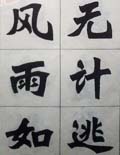 无计逃
风雨如